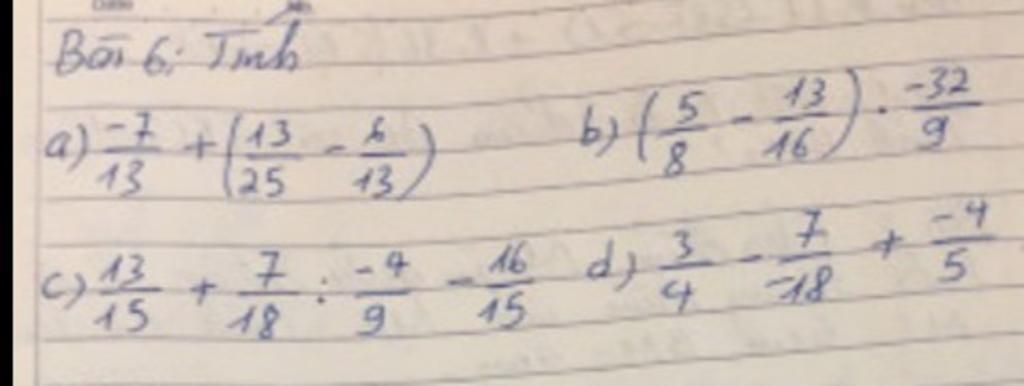 Bài 6: Tính
a) -7/13 + (13/25 - 6/13) b) (5/8 - 13/16) . -32/9
c) 13/15 + 7/18 : -4/9 - 16/15 d) 3/4 - 7/-18 + -4/5